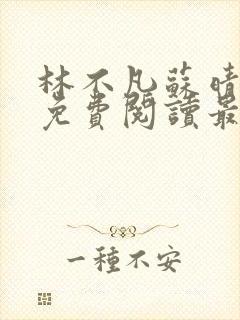 林不凡蘇晴
免費閱讀最
一種不安